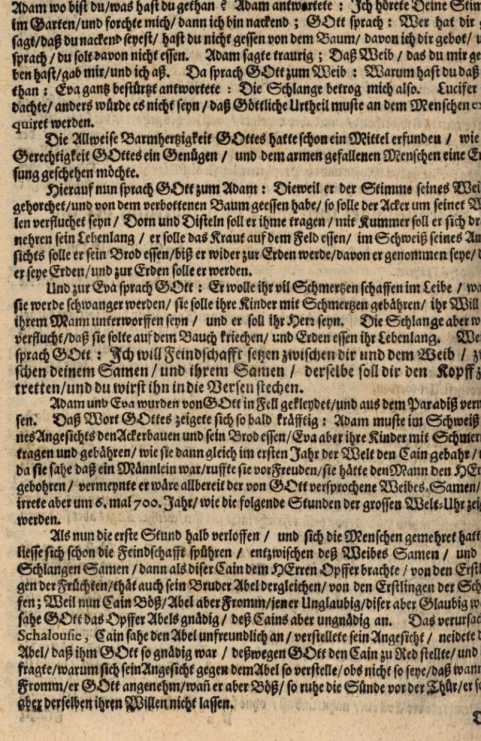 Adam wo bist du/was hast du gethan? Adam antwortete: Ich hörete Deine Stim
im Garten/und forchte mich/dann ich bin nackend; GOtt sprach: Wer hat dir
sagt/daß du nackend seyest/ hast du nicht gessen von dem Baum/ davon ich dir gebot/
sprach/ du solt davon nicht essen. Adam sagte traurig; Daß Weib/ das du mir ge
ben hast/gab mir/und ich aß. Da sprach GOtt zum Weib: Warum hast du daß
than: Eva gantz bestürtzt antwortete: Die Schlange betrog mich also. Lucifer
dachte/ anders würde es nicht seyn/ daß Göttliche Urtheil muste an dem Menschen ex
quiret werden.
Die Allweise Barmhertzigkeit GOttes hatte schon ein Mittel erfunden/ wie
Gerechtigkeit GOttes ein Genügen/ und dem armen gefallenen Menschen eine Er
sung geschehen möchte.
Hierauf nun sprach GOtt zum Adam: Dieweil er der Stimms seines Wei
gehorchet/und von dem verbottenen Baum geessen habe/ so solle der Acker um seinet W
len verfluchet seyn/ Dorn und Disteln soll er ihme tragen/ mit Kummer soll er sich dr
nehren sein Lebenlang/ er solle das Kraut auf dem Feld essen/ im Schweiß seines An
sichts solle er sein Brod essen/biß er wider zur Erden werde/davon er genommen seye/
er seye Erden/und zur Erden solle er werden.
Und zur Eva sprach GOtt: Er wolle ihr vil Schmertzen schaffen im Leibe/ wa
sie werde schwanger werden/ sie solle ihre Kinder mit Schmertzen gebähren/ ihr Will
ihrem Mann unterworffen seyn/ und er soll ihr Herr seyn. Die Schlange aber w
verflucht/daß sie solte auf dem Bauch kriechen/ und Erden essen ihr Lebenlang. We
sprach GOtt: Ich will Feindschafft setzen zwischen dir und dem Weib/ z
schen deinem Samen/ und ihrem Samen/ derselbe soll dir den Kopff z
tretten/und du wirst ihn in die Versen stechen.
Adam und Eva wurden von GOtt in Fell gekleydet/und aus dem Paradiß vern
sen. Daß Wort GOttes zeigete sich so bald kräfftig: Adam muste im Schweiß
nes Angesichts den Ackerbauen und sein Brod essen/Eva aber ihre Kinder mit Schmer
tragen und gebähren/ wie sie dann gleich im ersten Jahr der Welt den Cain gebahr/
da sie sahe daß ein Männlein war/ruffte sie vor Freuden/sie hätte den Mann den HEr
gebohren/ vermeynte er wäre allbereit der von GOtt versprochene Weibes-Samen/
irrete aber um 6. mal 700. Jahr/ wie die folgende Stunden der grossen Welt-Uhr zei
werden.
Als nun die erste Stund halb verloffen/ und sich die Menschen gemehret hatt
liesse sich schon die Feindschafft spühren/ entzwischen deß Weibes Samen/ und
Schlangen Samen/ dann als diser Cain dem HErren Opffer brachte/ von den Erstl
gen der Früchten/thät auch sein Bruder Abel dergleichen/ von den Erstlingen der Sch
fen; Weil nun Cain Böß/Abel aber Fromm/jener Unglaubig/diser aber Glaubig w
sahe GOtt das Opffer Abels gnädig/ deß Cains aber ungnädig an. Das verursac
Schalousie, Cain sahe den Abel unfreundlich an/ verstellete sein Angesicht/ neidete
Abel/ daß ihm GOtt so gnädig war/ deßwegen GOtt den Cain zu Red stellte/ und
fragte/warum sich sein Angesicht gegen dem Abel so verstelle/obs nicht so seye/daß wann
Fromm/er GOtt angenehm/wañ er aber Böß/ so ruhe die Sünde vor der Thür/er s
aber derselben ihren Willen nicht lassen.